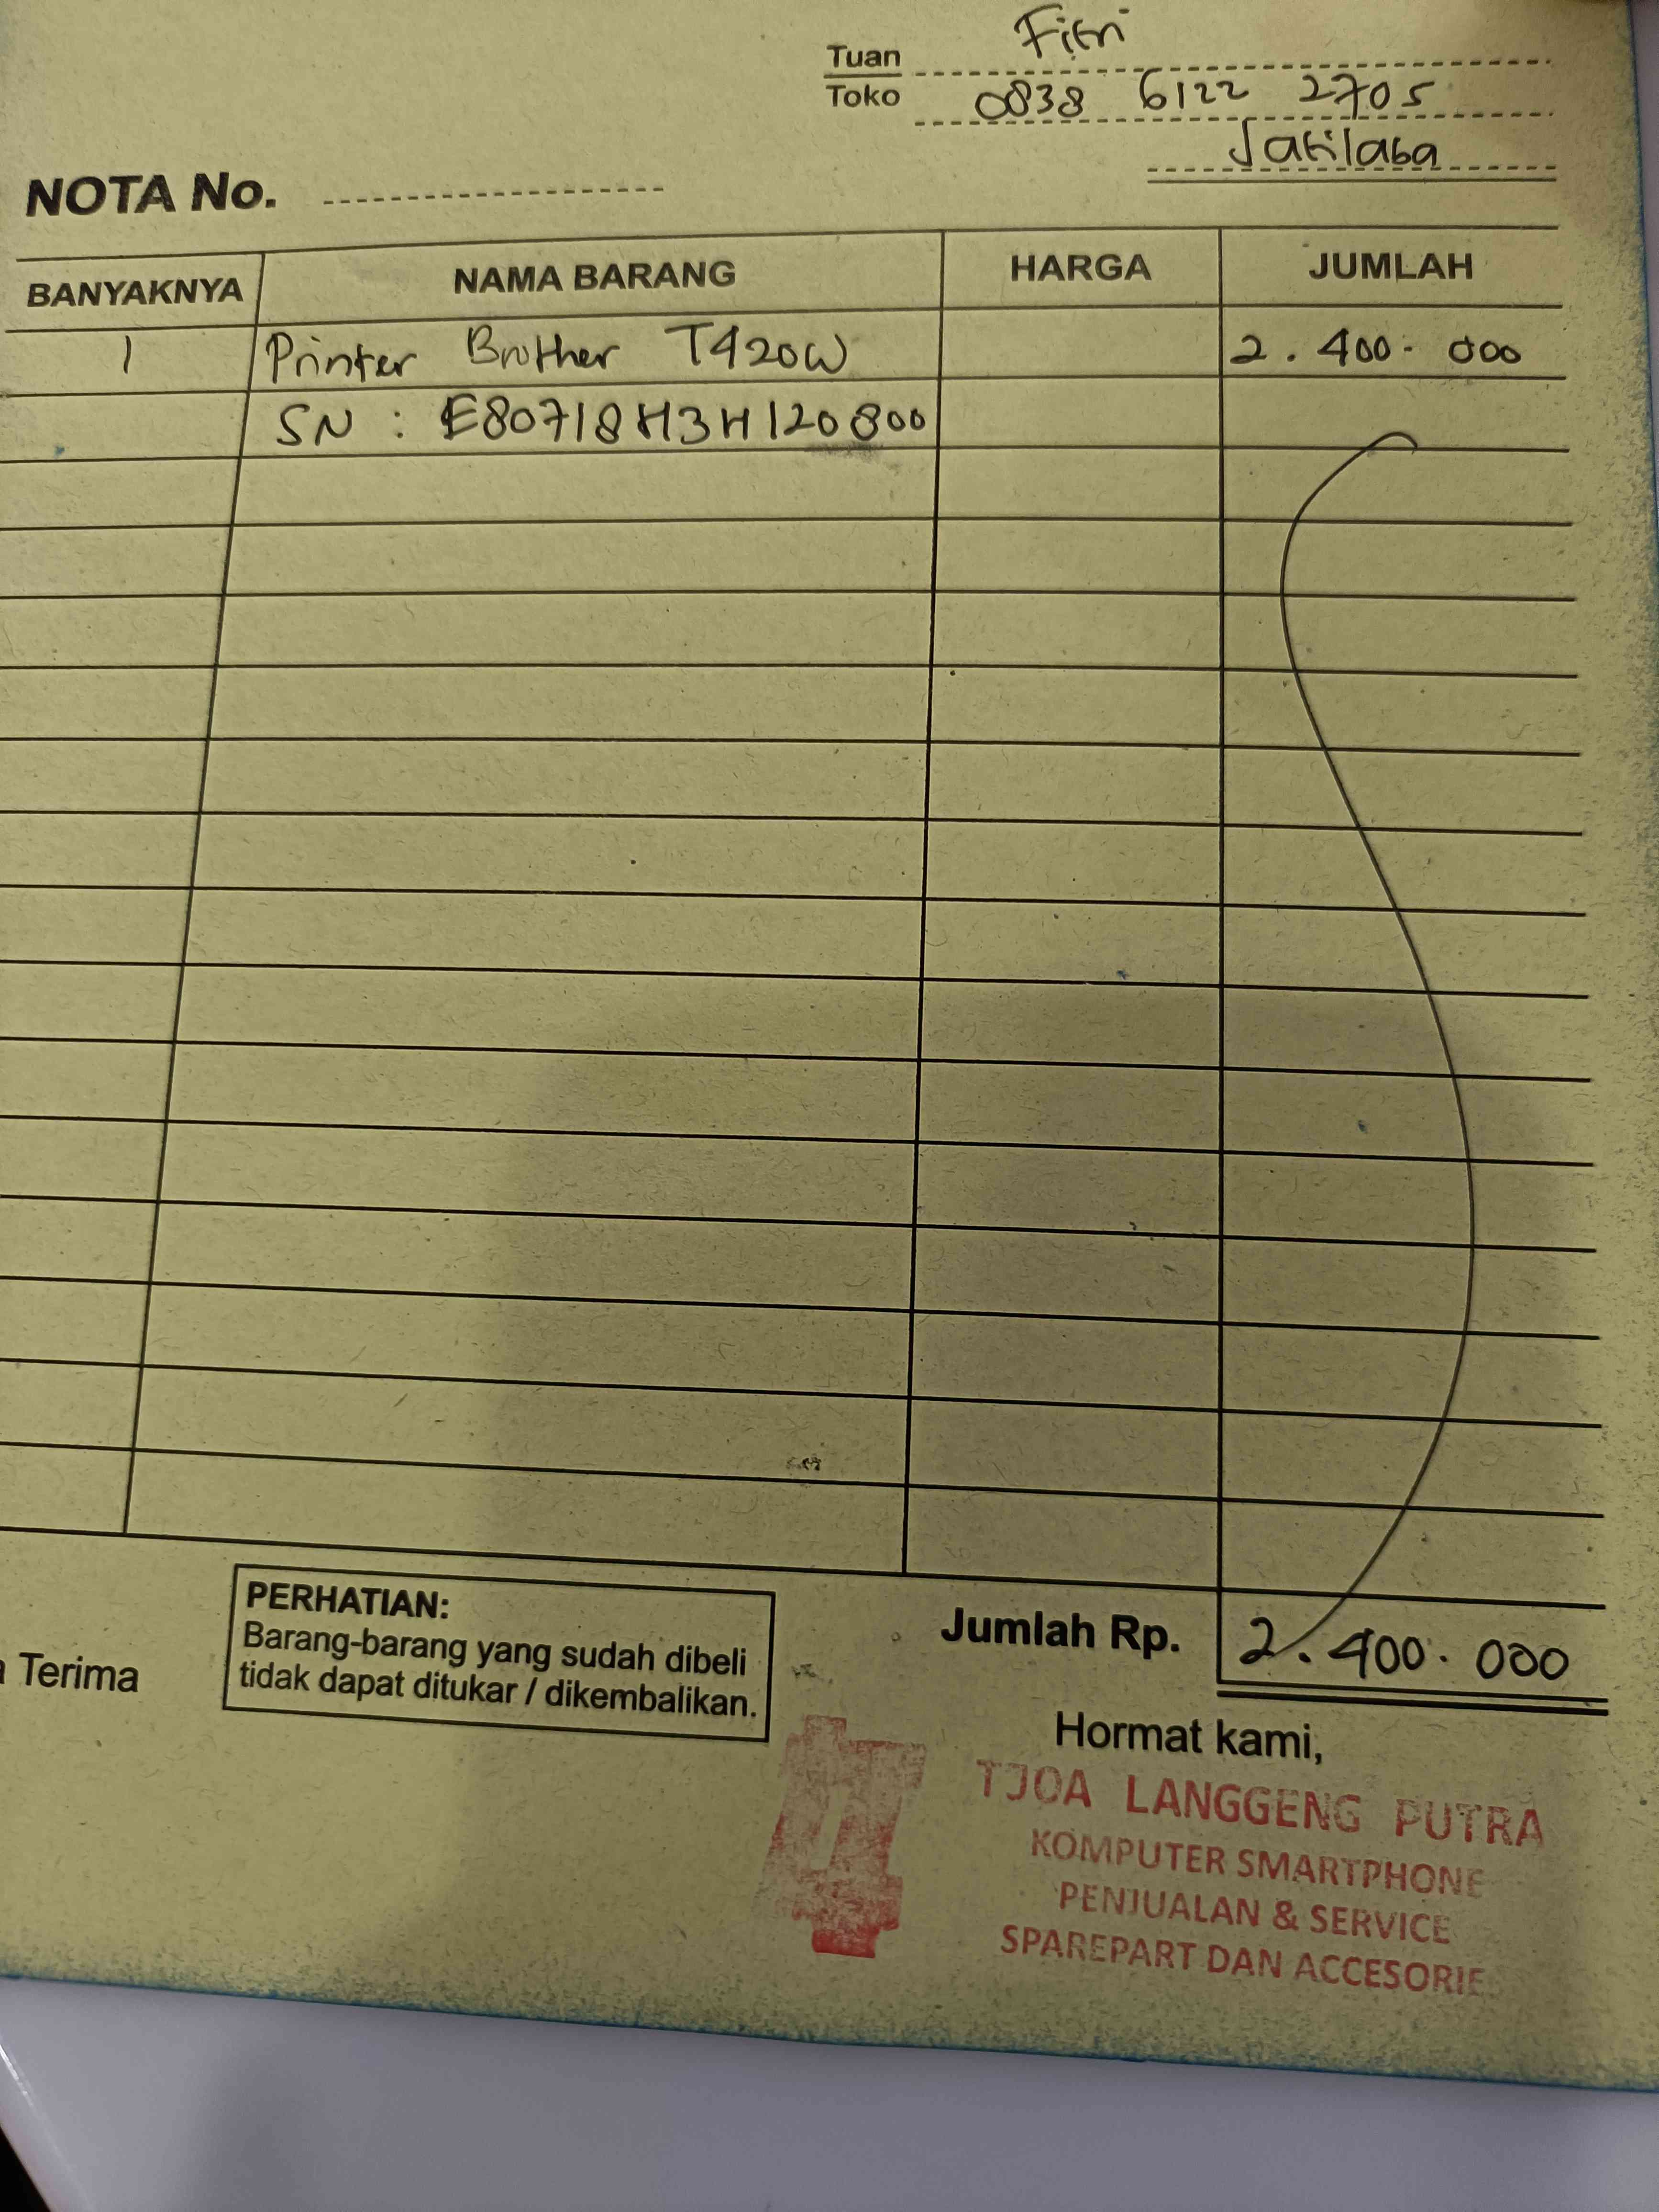 Tuan Fitri
Toko 0838 6122 2705
Jatilaba
NOTA No.
BANYAKNYA NAMA BARANG HARGA JUMLAH
1 Printer Brother T420W 2.400.000
SN : E80718H3H120800
PERHATIAN:
Barang-barang yang sudah dibeli
tidak dapat ditukar / dikembalikan.
Terima
Jumlah Rp. 2.400.000
Hormat kami,
TJOA LANGGENG PUTRA
KOMPUTER SMARTPHONE
PENJUALAN & SERVICE
SPAREPART DAN ACCESORIE